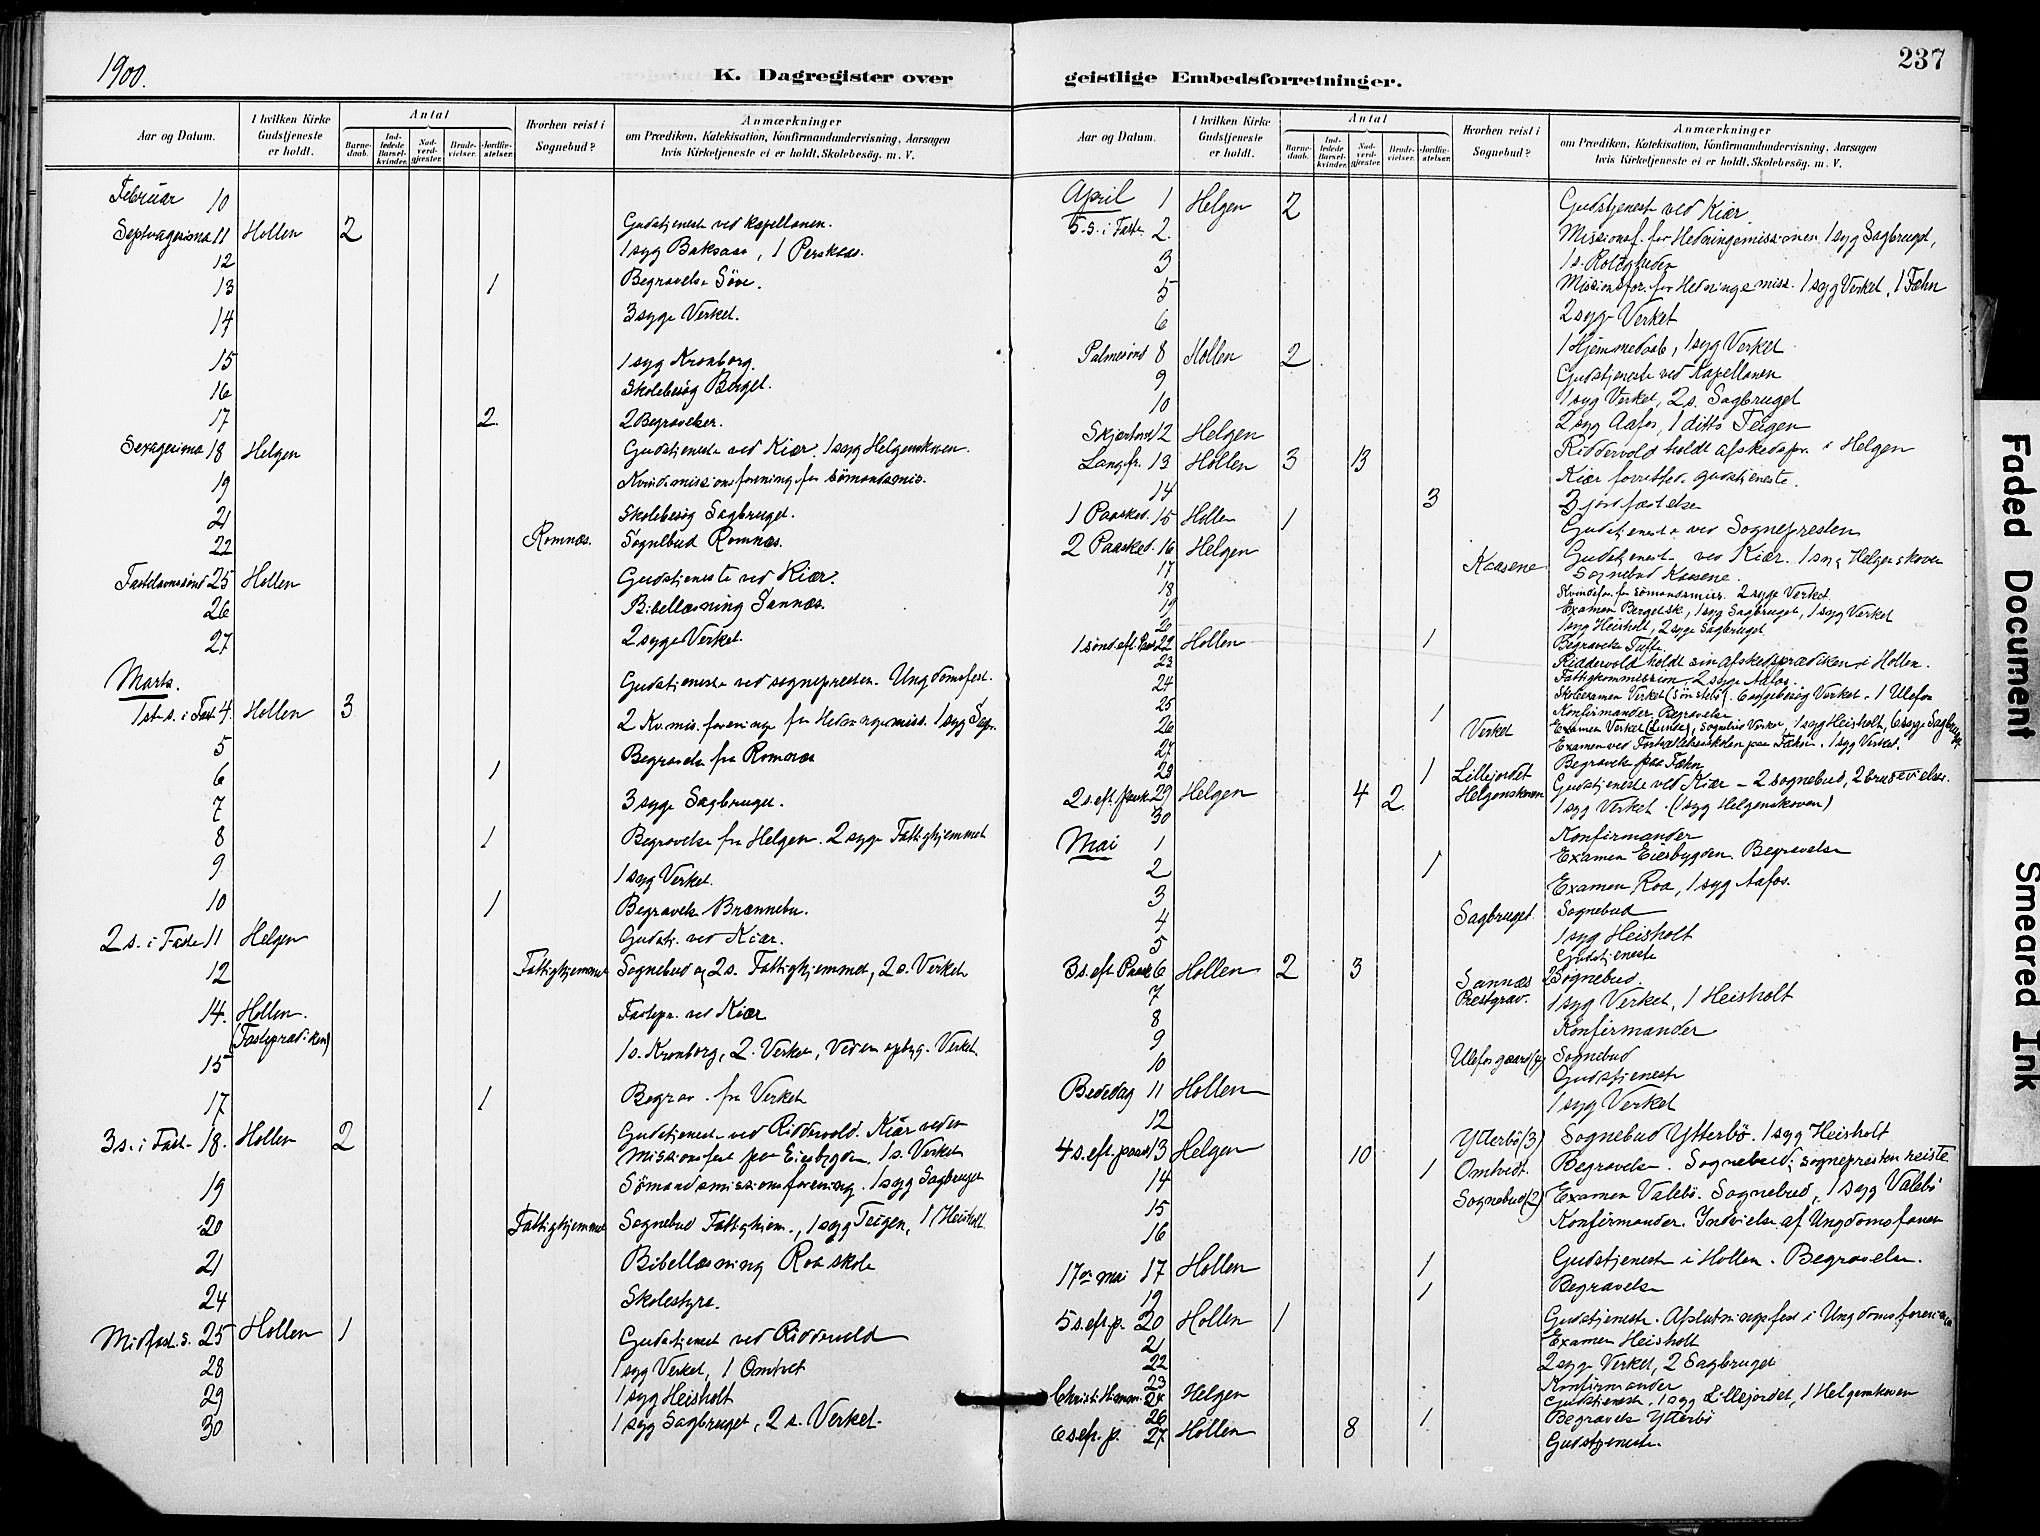 1900.
K. Dagregister over
Aar og Datum.
I hvilken Kirke Gudstjeneste er holdt.
Antal
Barnedaab.
Indledede Barselkvinder.
Nadverdgjæster.
Brudevielser.
Jordfæstelser.
Hvorhen reist i Sognebud?
Anmærkninger
om Prædiken, Katekisation, Konfirmandundervisning, Aarsagen
hvis Kirketjeneste ei er holdt, Skolebesög. m. V.
Februar 10
Septuagesima 11 Hollen 2 Gudstjeneste ved Kapellanen.
12 1 syg Baksaas, 1 Persksaas.
13 1 Begravelse Söve.
14 3 syge Verket.
15 1 syg Kronborg.
16 Skolebesög Berget.
17 2. 2 Begravelser.
Sexagesima 18 Helgen Gudstjeneste ved Kiær. 1 syg Helgenskoven.
19 Kvindemissionsforening for sömandsmis.
21 Skolebesög Sagbruget.
22 Romnæs. Sognebud Romnæs.
Fastelavnssönd 25 Hollen Gudstjeneste ved Kiær.
26 Bibellæsning Sannæs.
27 2 syge Verket.
Marts.
1ste s. i Fast 4 Hollen 3 Gudstjeneste ved sognepresten. Ungdomsfest.
5 2 Kv.mis.foreninge for Hedningemiss. 1 syg Sagbr.
6 1 Begravelse fra Romnæs
7 3 syge Sagbruget.
8 1 Begravelse fra Helgen. 2 syge Fattighjemmet
9 1 syg Verket.
10 1 Begravelse Brænnebu.
2 s. i Faste 11 Helgen Gudstj. ved Kiær.
12 Fattighjemmet Sognebud og 2 s. Fattighjemmet, 2 s. Verket
14. Hollen. Fastepr. ved Kiær
(Fasteprædiken)
15 1 s. Kronborg, 2. Verket, Veden opbyg. Verket
17 1 Begrav. fra Verket
3 s. i Fast. 18. Hollen 2 Gudstjeneste ved Riddervold. Kiær veden
Missionsfest paa Eiesbygden. 1 s. Verket
19 Sömandsmissionsforening. 1 syg Sagbruget
20 Fattighjemmet Sognebud Fattighjem., 1 syg Teigen, 1 Heisholt
21 Bibellæsning Roa skole
24 Skolestyre.
Midfast. s. 25 Hollen 1 Gudstjenest ved Riddervold
28 1 syg Verket, 1 Omtvet
29 1 syg Heisholt
30 1 syg Sagbruget, 2 s. Verket.
237
geistlige Embedsforretninger.
Aar og Datum.
I hvilken Kirke Gudstjeneste er holdt.
Antal
Barnedaab.
Indledede Barselkvinder.
Nadverdgjæster.
Brudevielser.
Jordfæstelser.
Hvorhen reist i Sognebud?
Anmærkninger
om Prædiken, Katekisation, Konfirmandundervisning, Aarsagen
hvis Kirketjeneste ei er holdt, Skolebesög. m. V.
April 1 Helgen 2 Gudstjeneste ved Kiær
5. s. i Faste 2. Missionsf. for Hedningemissionen, 1 syg Sagbruget,
3 1 s. Roligheden
5 Missionsfor. for Hedningemiss. 1 syg Verket, 1 Fæhn
6 2 syge Verket
Palmesönd 8 Hollen 2 1 Hjemmedaab, 1 syg Verket
9 Gudstjeneste ved Kapellanen
10 1 syg Verket, 2 s. Sagbruget
2 syg Aafos, 1 ditto Teigen
Skjærtorsd 12 Helgen Riddervold holdt afskedspr. i Helgen
Langfr. 13 Hollen 3 13 Kiær forrettede gudstjeneste.
14 3 3 jordfæstelse
1 Paasked. 15 Hollen 1 Gudstjeneste ved Sognepresten
2 Paasked. 16 Helgen Gudstjenest ved Kiær. 1 syg Helgenskoven
17 Kaasene Sognebud Kaasene.
18 Kvindefor. for sömandsmiss. 2 syge Verket
19 Examen Berget sk., 1 syg Sagbruget, 1 syg Verket
20 1 syg Heisholt, 2 syge Sagbruget
1 sönd. eft. Paas 22 Hollen 1 Begravelse Tufte.
23 Riddervold holdt sin afskedsprædiken i Hollen.
24 Fattigkommission. 2 syge Aafos.
25 1 Konfirmander, Begravelse
26 Verket Examen Verket (Lunde), Sognebud Verket, 1 syg Heisholt, 6 syge Sagbruget
27 Examen ved Fortsættelsesskolen paa Fæhn. 1 syg Verket.
28 1 Lillejordet Begravelse paa Fæhn
2 s. eft. Paask 29 Helgen 4 2 Helgenskoven Gudstjeneste ved Kiær – 2 sognebud, 2 brudevielser.
30 1 syg Verket. (1 syg Helgenskoven)
Mai 1 Konfirmander
2 1 Examen Eiesbygden. Begravelse
3 Examen Roa, 1 syg Aafos.
4 Sagbruget Sognebud
5 1 syg Heisholt
3 s. eft Paask 6 Hollen 2 3 Gudstjeneste
7 Sannæs Prestgrav. 2 Sognebud.
8 1 syg Verket, 1 Heisholt
9 Konfirmander
10 Ulefosgaard (4) Sognebud
Bededag 11 Hollen Gudstjeneste
12 1 syg Verket
4 s. eft. paask 13 Helgen 10 Ytterbö (3) Sognebud Ytterbö. 1 syg Heisholt
14 1 Omtvedt. Begravelse. Sognebud; sognepresten reiste
15 Sognebud (2) Examen Valebö. Sognebud, 1 syg Valebö
16 Konfirmander. Indvielse af Ungdomsfanen
17de mai 17 Hollen 1 Gudstjenest i Hollen. Begravelse.
19 1 Begravelse
5 s. eft. p. 20 Hollen 1 Gudstjeneste. Afslutningsfest i Ungdomsforeningen
21 Examen Heisholt
22 2 syge Verket, 2 Sagbruget
23 Konfirmander
Christi Himm. 24 Helgen Gudstjeneste. 1 syg Lillejordet, 1 Helgenskoven
26 1 Begravelse Ytterbö
6 s. eft. p. 27. Hollen 8 Gudstjeneste.
Faded Document
Smeared Ink